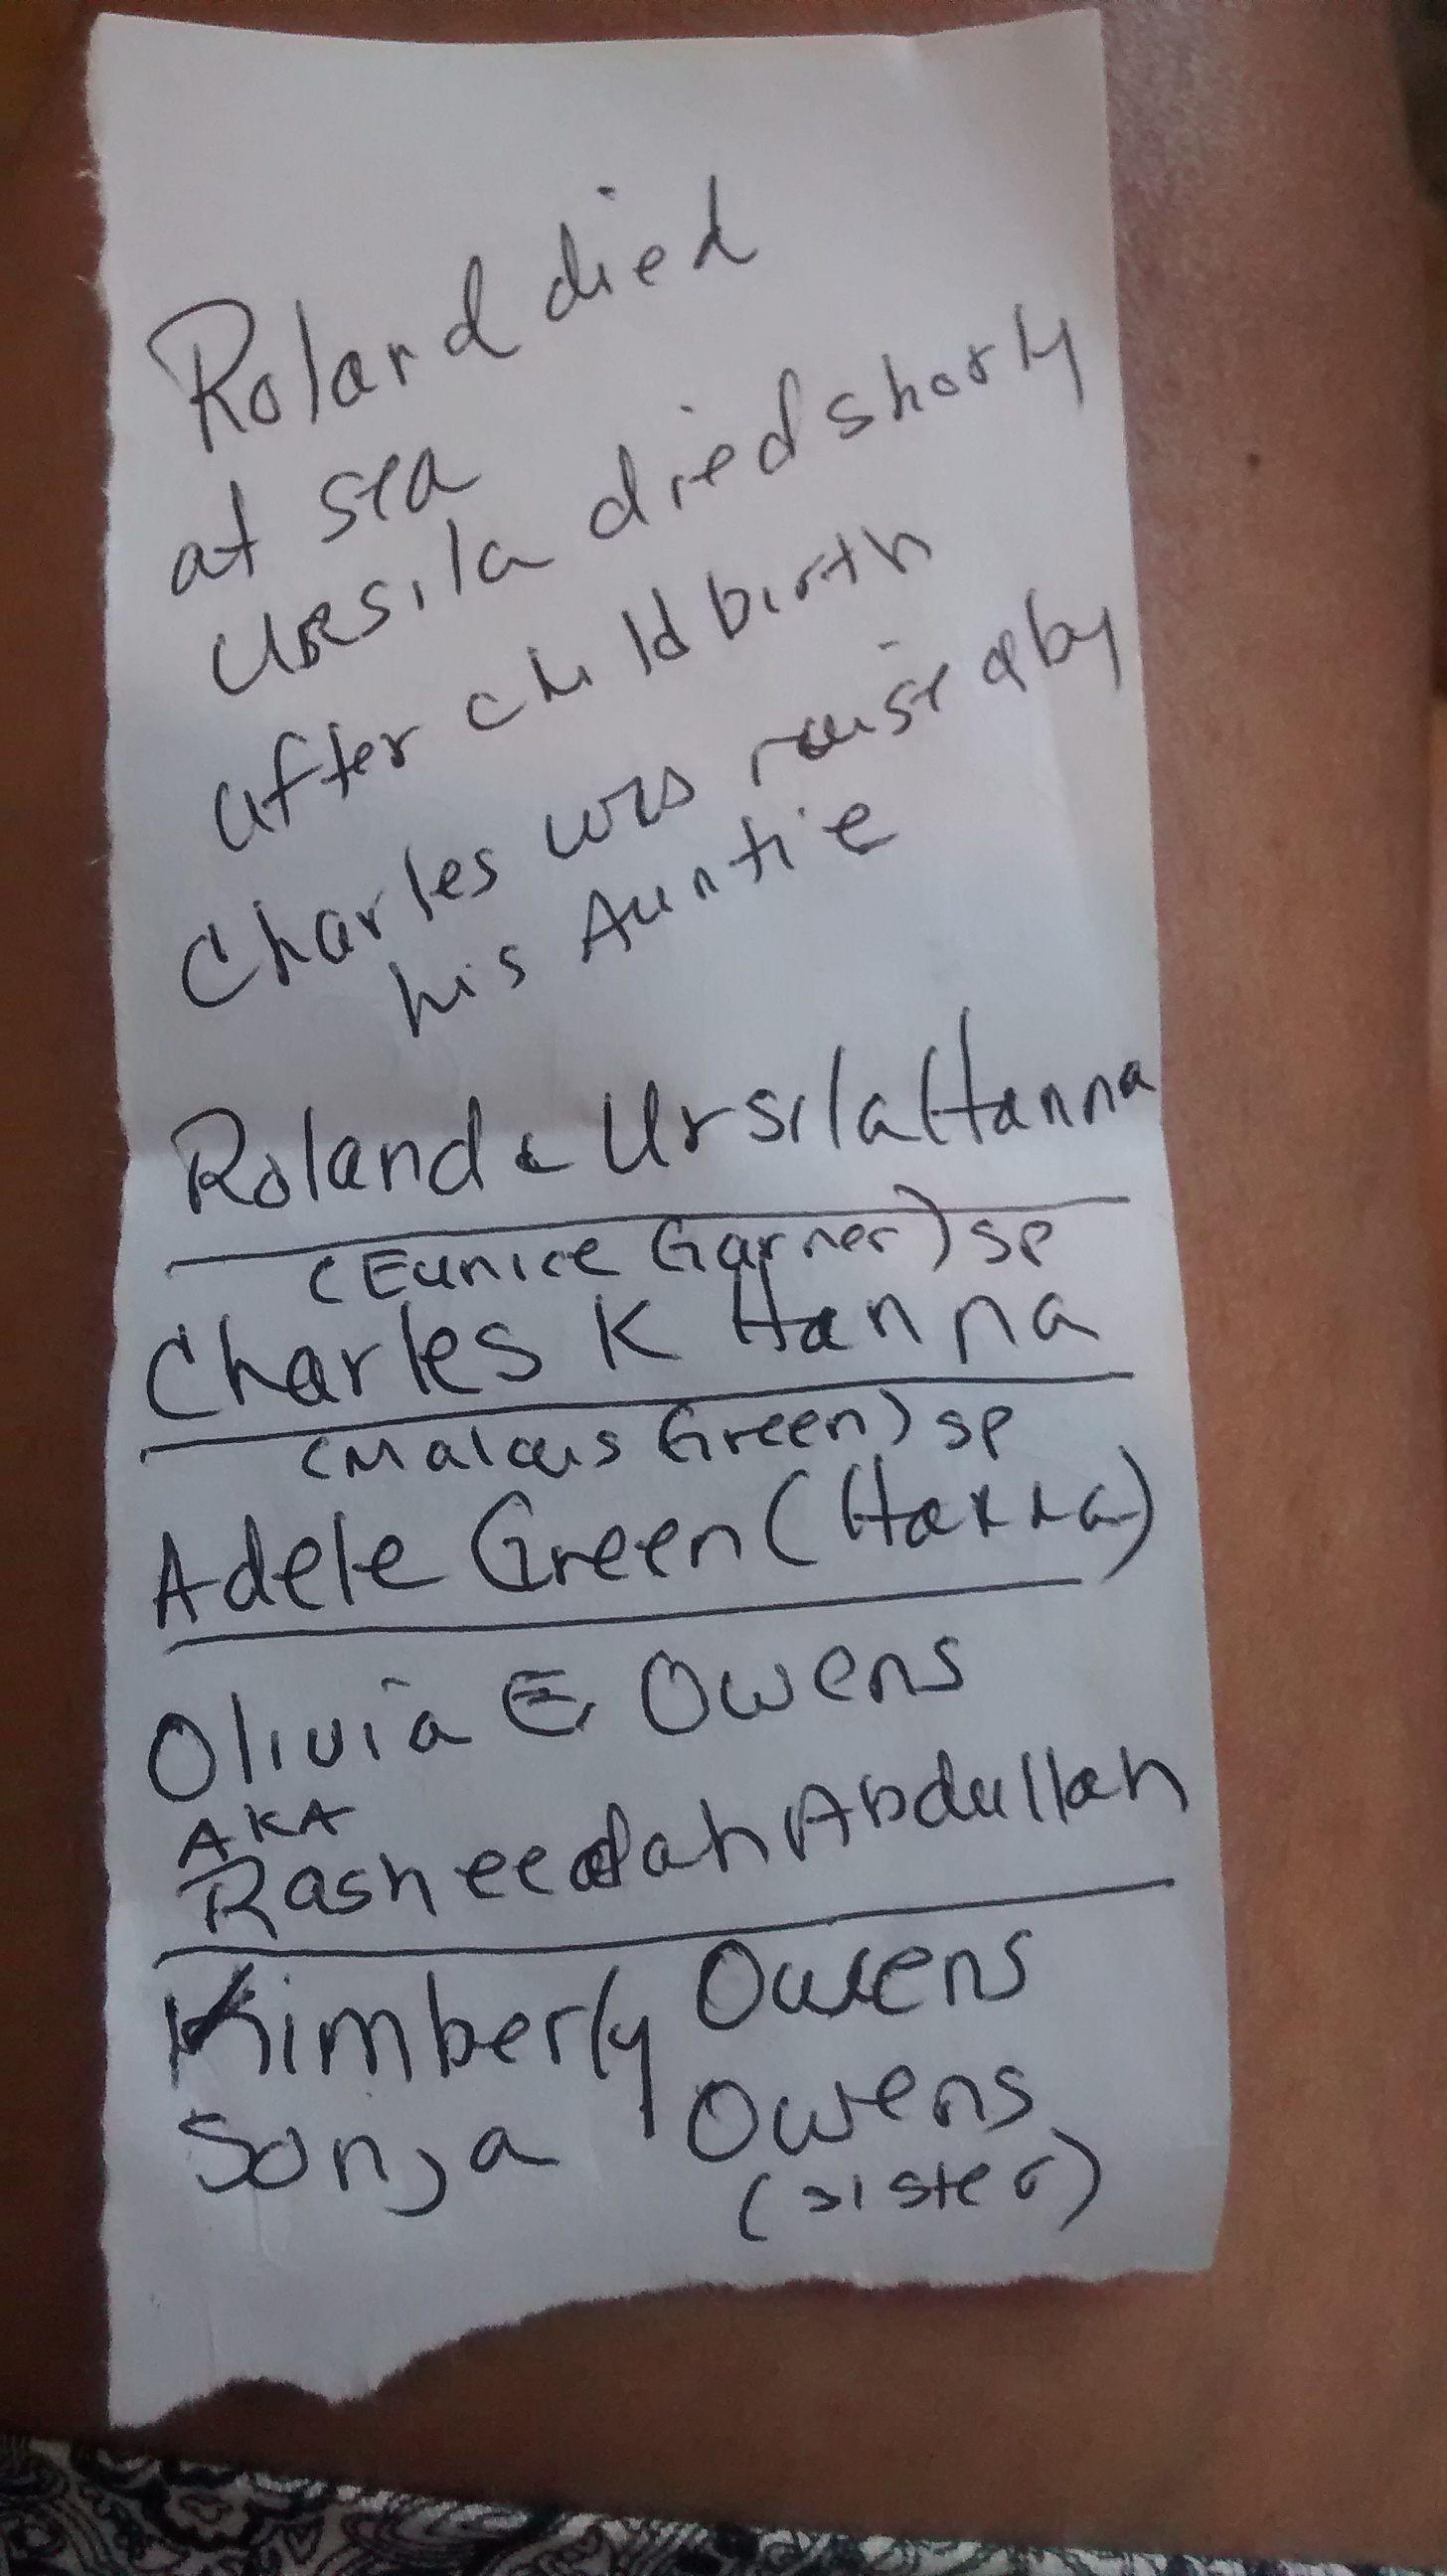 Roland died
at sea
Ursila died shorly
after child birth
Charles was raised by
his Auntie
Roland & Ursila Hanna
(Eunice Garner) sp
Charles K Hanna
(Malcus Green) sp
Adele Green (Hanna)
Olivia E Owens
AKA
Rasheedah Abdullah
Kimberly Owens
Sonja Owens
(sister)